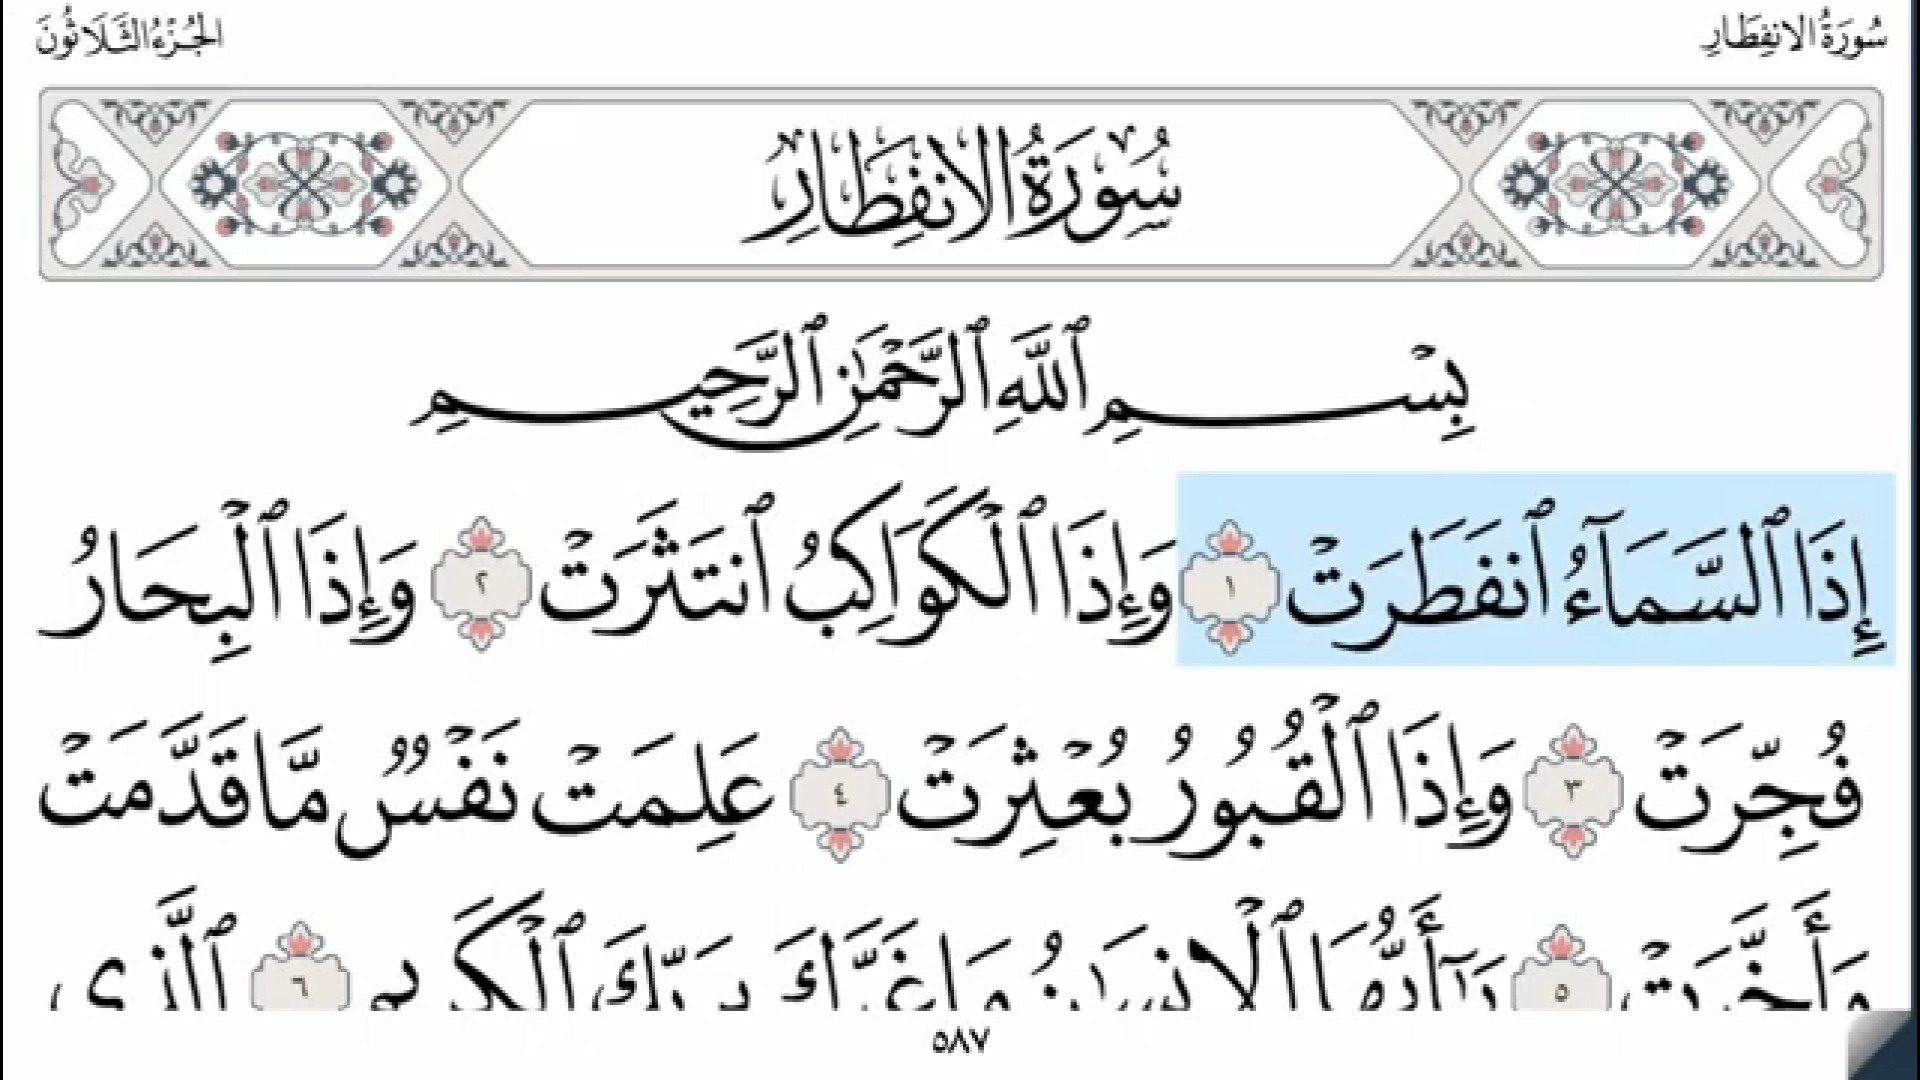 سُورَةُ الانفِطَارِ
الجُزْءُ الثَّلَاثُونَ
سُورَةُ الانفِطَارِ
بِسْمِ ٱللَّهِ ٱلرَّحْمَٰنِ ٱلرَّحِيمِ
إِذَا ٱلسَّمَآءُ ٱنفَطَرَتْ ١ وَإِذَا ٱلْكَوَاكِبُ ٱنتَثَرَتْ ٢ وَإِذَا ٱلْبِحَارُ
فُجِّرَتْ ٣ وَإِذَا ٱلْقُبُورُ بُعْثِرَتْ ٤ عَلِمَتْ نَفْسٌ مَّا قَدَّمَتْ
وَأَخَّرَتْ ٥ يَٰٓأَيُّهَا ٱلْإِنسَٰنُ مَا غَرَّكَ بِرَبِّكَ ٱلْكَرِيمِ ٦ ٱلَّذِى
٥٨٧